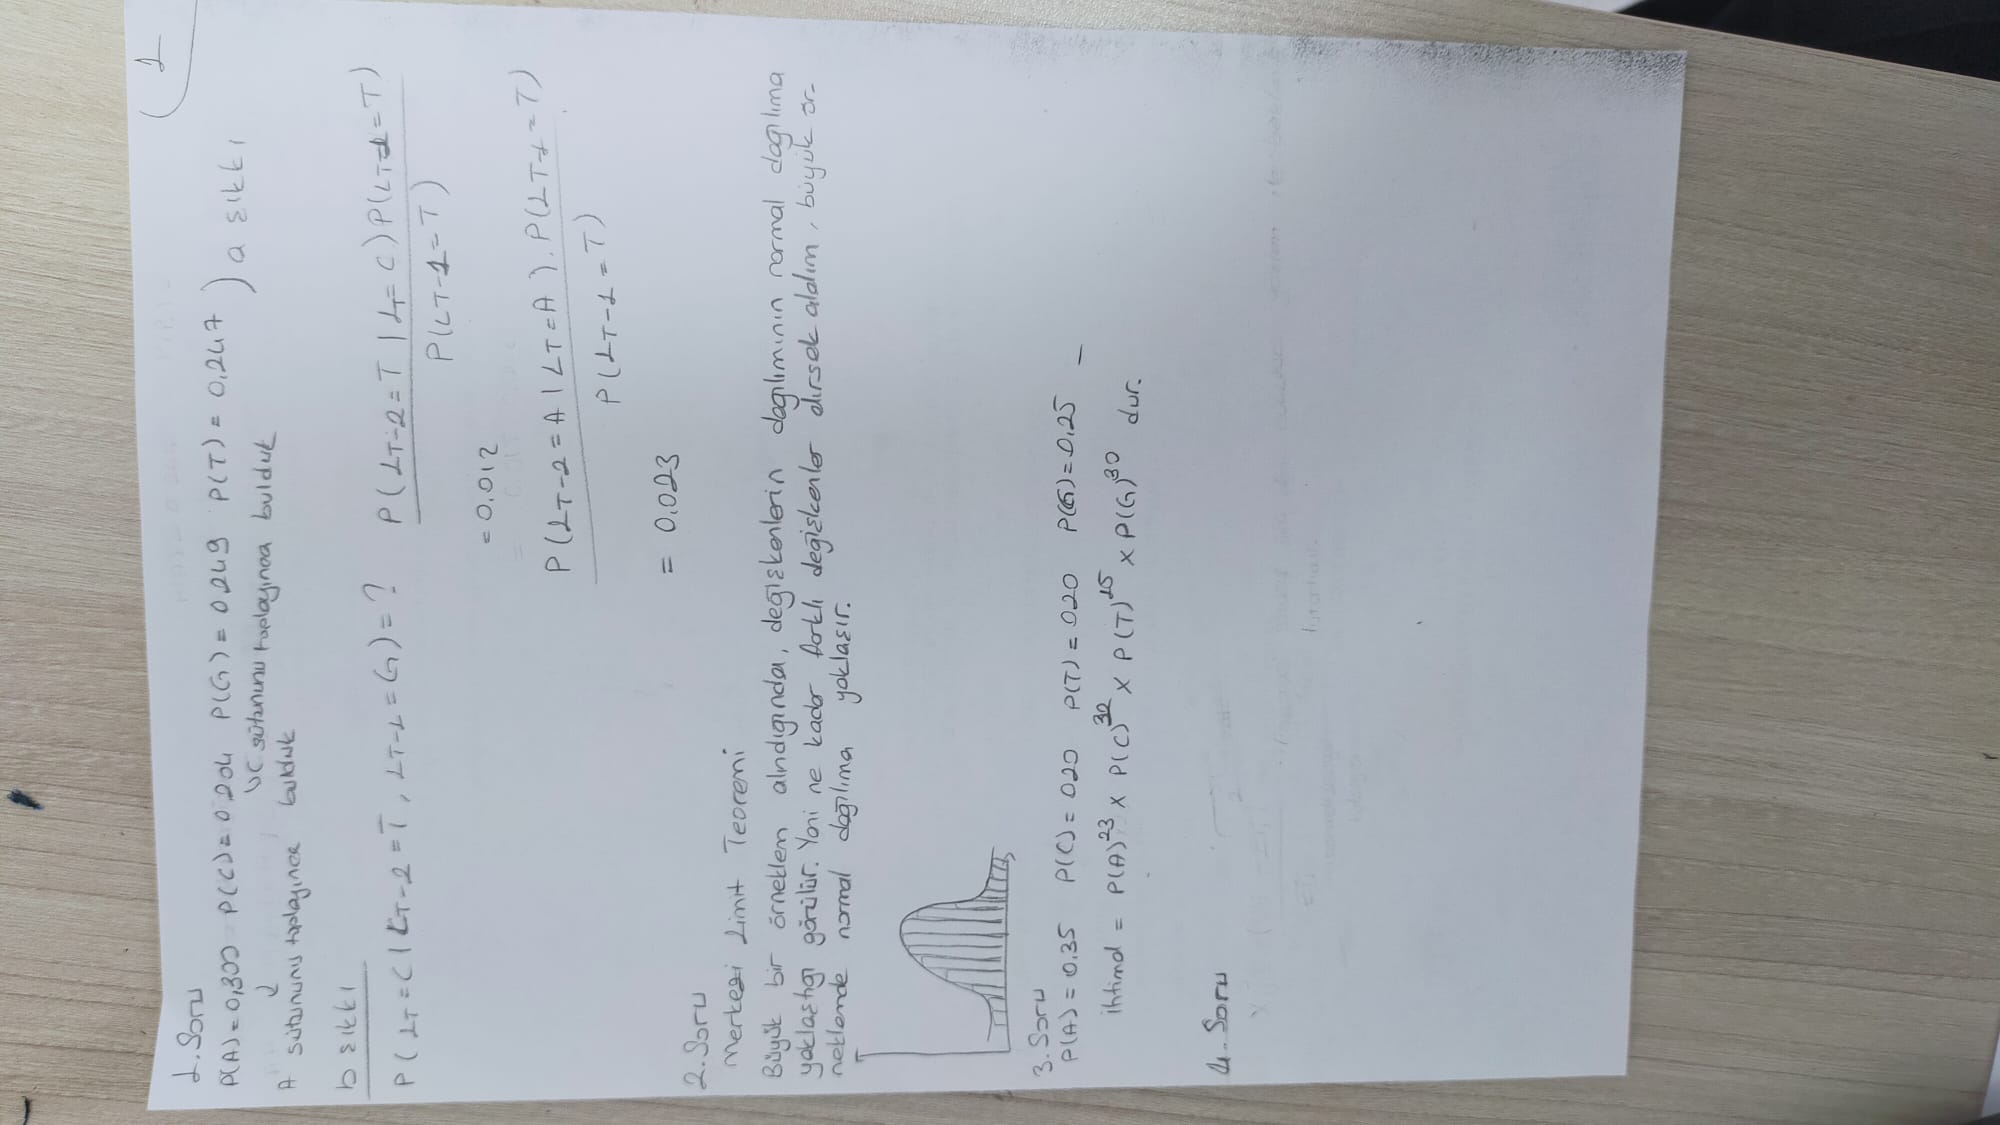 1
1. Soru
P(A)=0,300 P(C)=0.204 P(G)=0.249 P(T)=0.247 ) a şıkkı
A sütununu toplayınca bulduk
C sütununu toplayınca bulduk
b şıkkı
P(LT=C|LT-2=T, LT-1=G)=? P(LT-2=T|LT=C)P(LT-1=T)
P(LT-1=T)
=0.012
P(LT-2=A|LT=A).P(LT-1=T)
P(LT-1=T)
= 0.023
2. Soru
Merkezi Limit Teoremi
Büyük bir örneklem alındığında, değişkenlerin dağılımının normal dağılıma
yaklaştığı görülür. Yani ne kadar farklı değişkenler alırsak alalım, büyük ör-
neklemde normal dağılıma yaklaşır.
3. Soru
P(A)=0.35 P(C)=020 P(T)=020 P(G)=0.25 –
ihtimal = P(A)^23 x P(C)^32 x P(T)^25 x P(G)^30 dur.
4. Soru